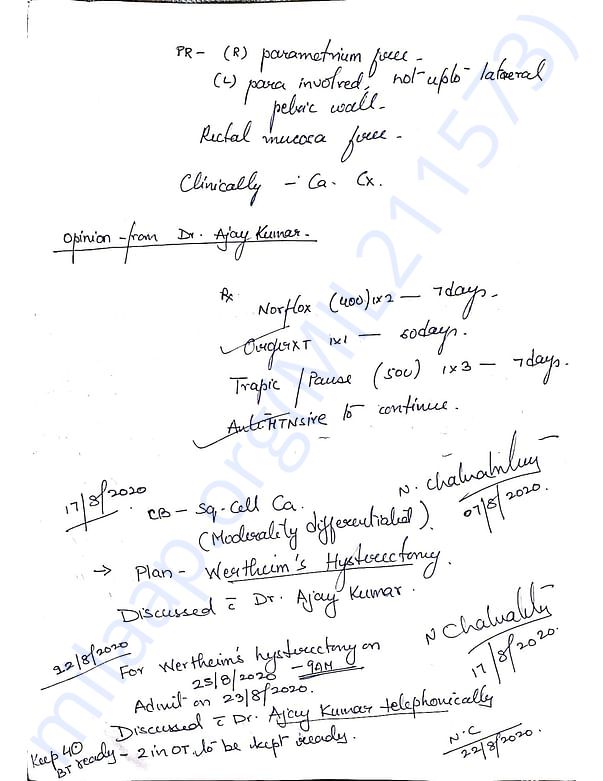 PR - (R) parametrium free -
(L) para involved, not upto lateral
pelvic wall -
Rectal mucosa free -
Clinically - Ca. Cx.
Opinion - from Dr. Ajay Kumar -
Rx
Norflox (400) 1x2 - 7 days.
XT 1x1 - 60 days.
Trapic / Pause (500) 1x3 - 7 days.
AntiHTNsive to continue.
N. Chakrabarty
07/8/2020.
17/8/2020
CB - Sq. Cell Ca.
(Moderately differentiated).
→ Plan - Wertheim's Hysterectomy.
Discussed c̄ Dr. Ajay Kumar.
N Chakrabarty
17/8/2020.
22/8/2020
For Wertheim's hysterectomy on
25/8/2020 - 9AM
Admit on 23/8/2020.
Discussed c̄ Dr. Ajay Kumar telephonically
Keep 40
BT ready - 2 in OT to be kept ready.
N.C
22/8/2020.
milaap.org(MIL211573)